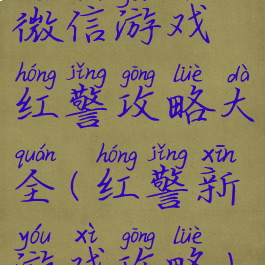 微信游戏
hóng jǐng gōng lüè dà
红警攻略大
quán hóng jǐng xīn
全(红警新
yóu xì gōng lüè
游戏攻略)